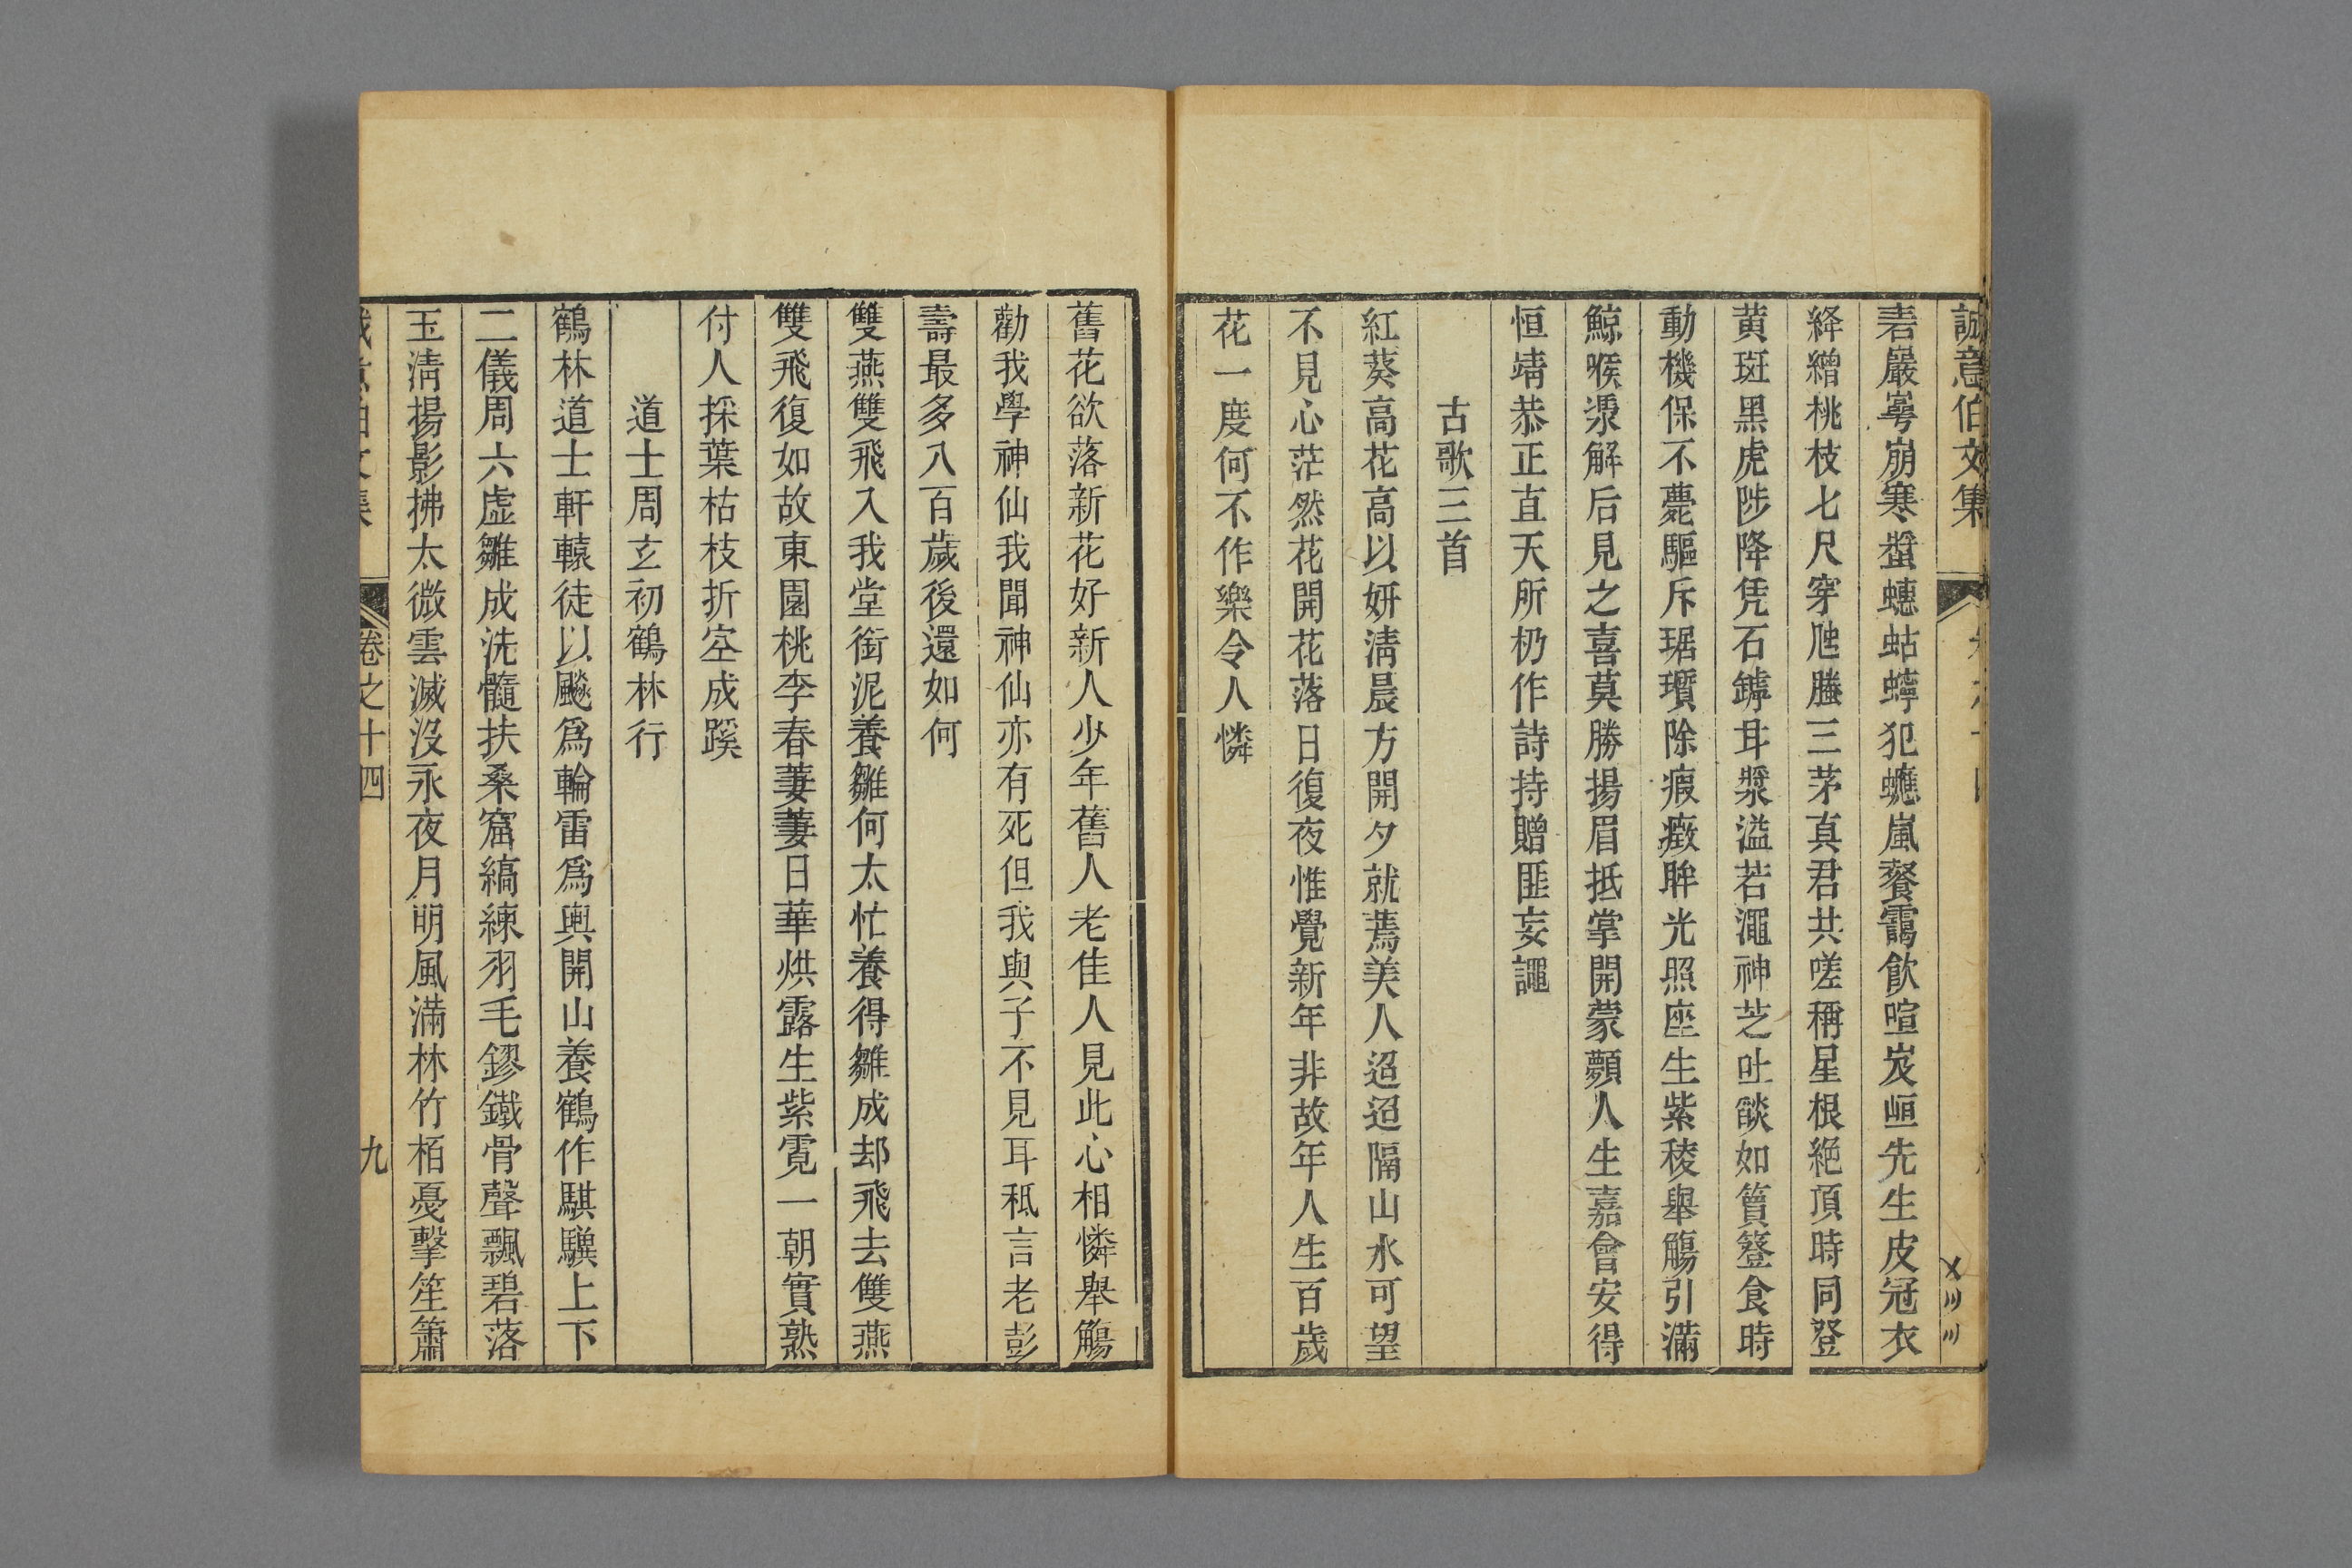 誠意伯文集
砉巖嶀崩寒螿蟪蛄蟀犯蠦嵐餐靄飲暄岌峘先生皮冠衣
絳繒桃枝七尺穿虺螣三茅真君共嗟稱星根絶頂時同登
黄斑黑虎陟降凭石罅耳漿溢若澠神芝吐燄如篝簦食時
動機保不薨驅斥琚瓆除瘕癥眸光照座生紫稜舉觴引滿
鯨喉漀解后見之喜莫勝揚眉抵掌開蒙顭人生嘉會安得
恒靖恭正直天所扔作詩持贈匪妄譝
古歌三首
紅葵高花高以妍淸晨方開夕就蔫美人迢迢隔山水可望
不見心茫然花開花落日復夜惟覺新年非故年人生百歲
花一度何不作樂令人憐
舊花欲落新花好新人少年舊人老佳人見此心相憐舉觴
勸我學神仙我聞神仙亦有死但我與子不見耳秪言老彭
壽最多八百歲後還如何
雙燕雙飛入我堂銜泥養雛何太忙養得雛成却飛去雙燕
雙飛復如故東園桃李春萋萋日華烘露生紫霓一朝實熟
付人採葉枯枝折空成蹊
道士周玄初鶴林行
鶴林道士軒轅徒以飈爲輪雷爲輿開山養鶴作騏驥上下
二儀周六虛雛成洗髓扶桑窟縞練羽毛鏐鐵骨聲飄碧落
玉淸揚影拂太微雲滅沒永夜月明風滿林竹栢戞擊笙簫
卷之十四 九